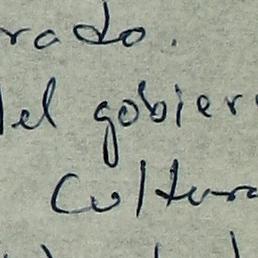 rado.
del gobier
Cultura